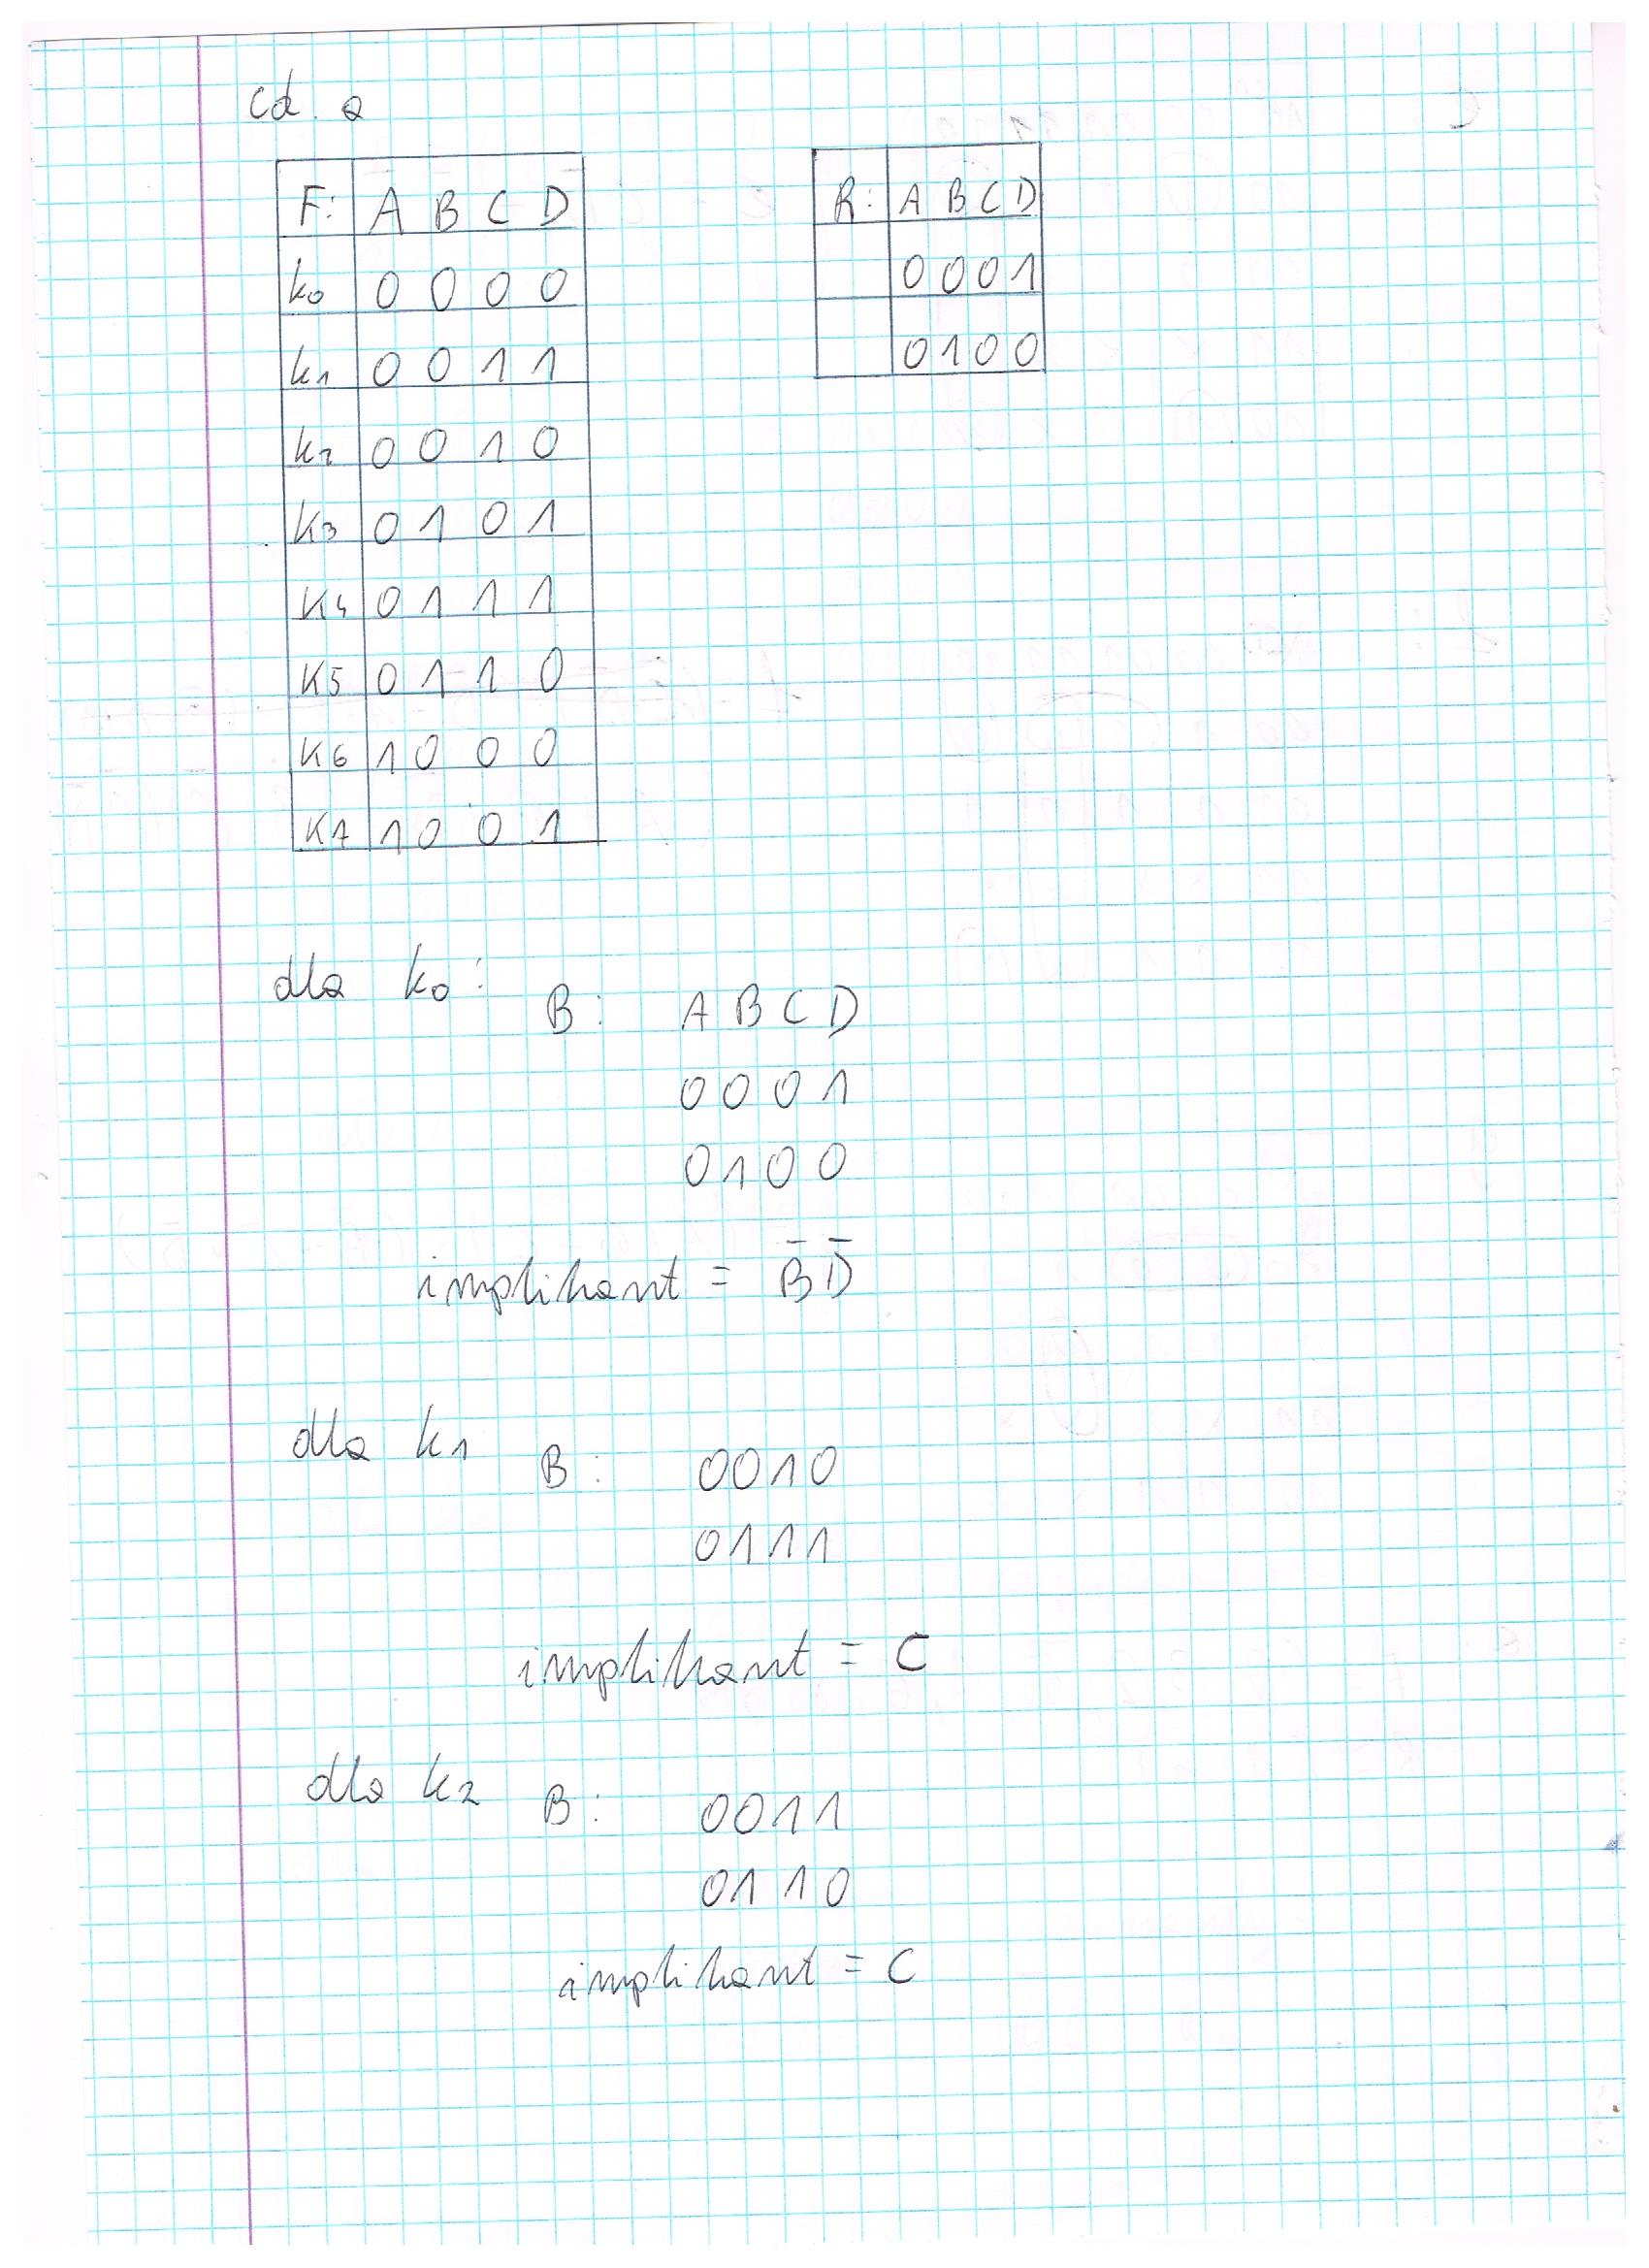 cd. a
F: A B C D
k0 0 0 0 0
k1 0 0 1 1
k2 0 0 1 0
k3 0 1 0 1
k4 0 1 1 1
k5 0 1 1 0
k6 1 0 0 0
k7 1 0 0 1
R: A B C D
0 0 0 1
0 1 0 0
dla k0:
B: A B C D
0 0 0 1
0 1 0 0
implikant = B̄ D̄
dla k1 B: 0010
0111
implikant = C
dla k2 B: 0011
0110
implikant = C